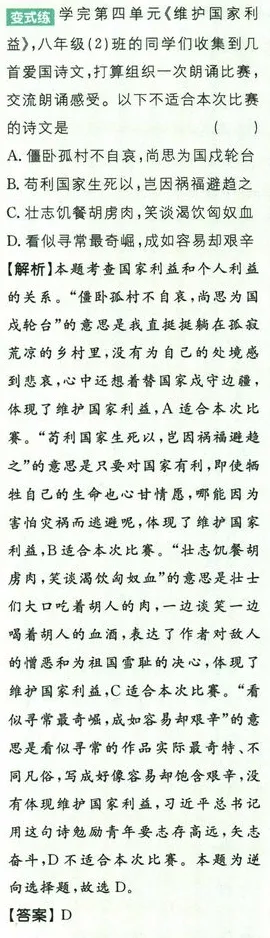 变式练 学完第四单元《维护国家利
益》,八年级(2)班的同学们收集到几
首爱国诗文,打算组织一次朗诵比赛,
交流朗诵感受。以下不适合本次比赛
的诗文是 ( )
A. 僵卧孤村不自哀,尚思为国戍轮台
B. 苟利国家生死以,岂因祸福避趋之
C. 壮志饥餐胡虏肉,笑谈渴饮匈奴血
D. 看似寻常最奇崛,成如容易却艰辛
【解析】本题考查国家利益和个人利益
的关系。“僵卧孤村不自哀,尚思为国
戍轮台”的意思是我直挺挺躺在孤寂
荒凉的乡村里,没有为自己的处境感
到悲哀,心中还想着替国家戍守边疆,
体现了维护国家利益,A 适合本次比
赛。“苟利国家生死以,岂因祸福避趋
之”的意思是只要对国家有利,即使牺
牲自己的生命也心甘情愿,哪能因为
害怕灾祸而逃避呢,体现了维护国家
利益,B 适合本次比赛。“壮志饥餐胡
虏肉,笑谈渴饮匈奴血”的意思是壮士
们大口吃着胡人的肉,一边谈笑一边
喝着胡人的血酒,表达了作者对敌人
的憎恶和为祖国雪耻的决心,体现了
维护国家利益,C 适合本次比赛。“看
似寻常最奇崛,成如容易却艰辛”的意
思是看似寻常的作品实际最奇特、不
同凡俗,写成好像容易却饱含艰辛,没
有体现维护国家利益,习近平总书记
用这句诗勉励青年要志存高远,矢志
奋斗,D 不适合本次比赛。本题为逆
向选择题,故选 D。
【答案】D